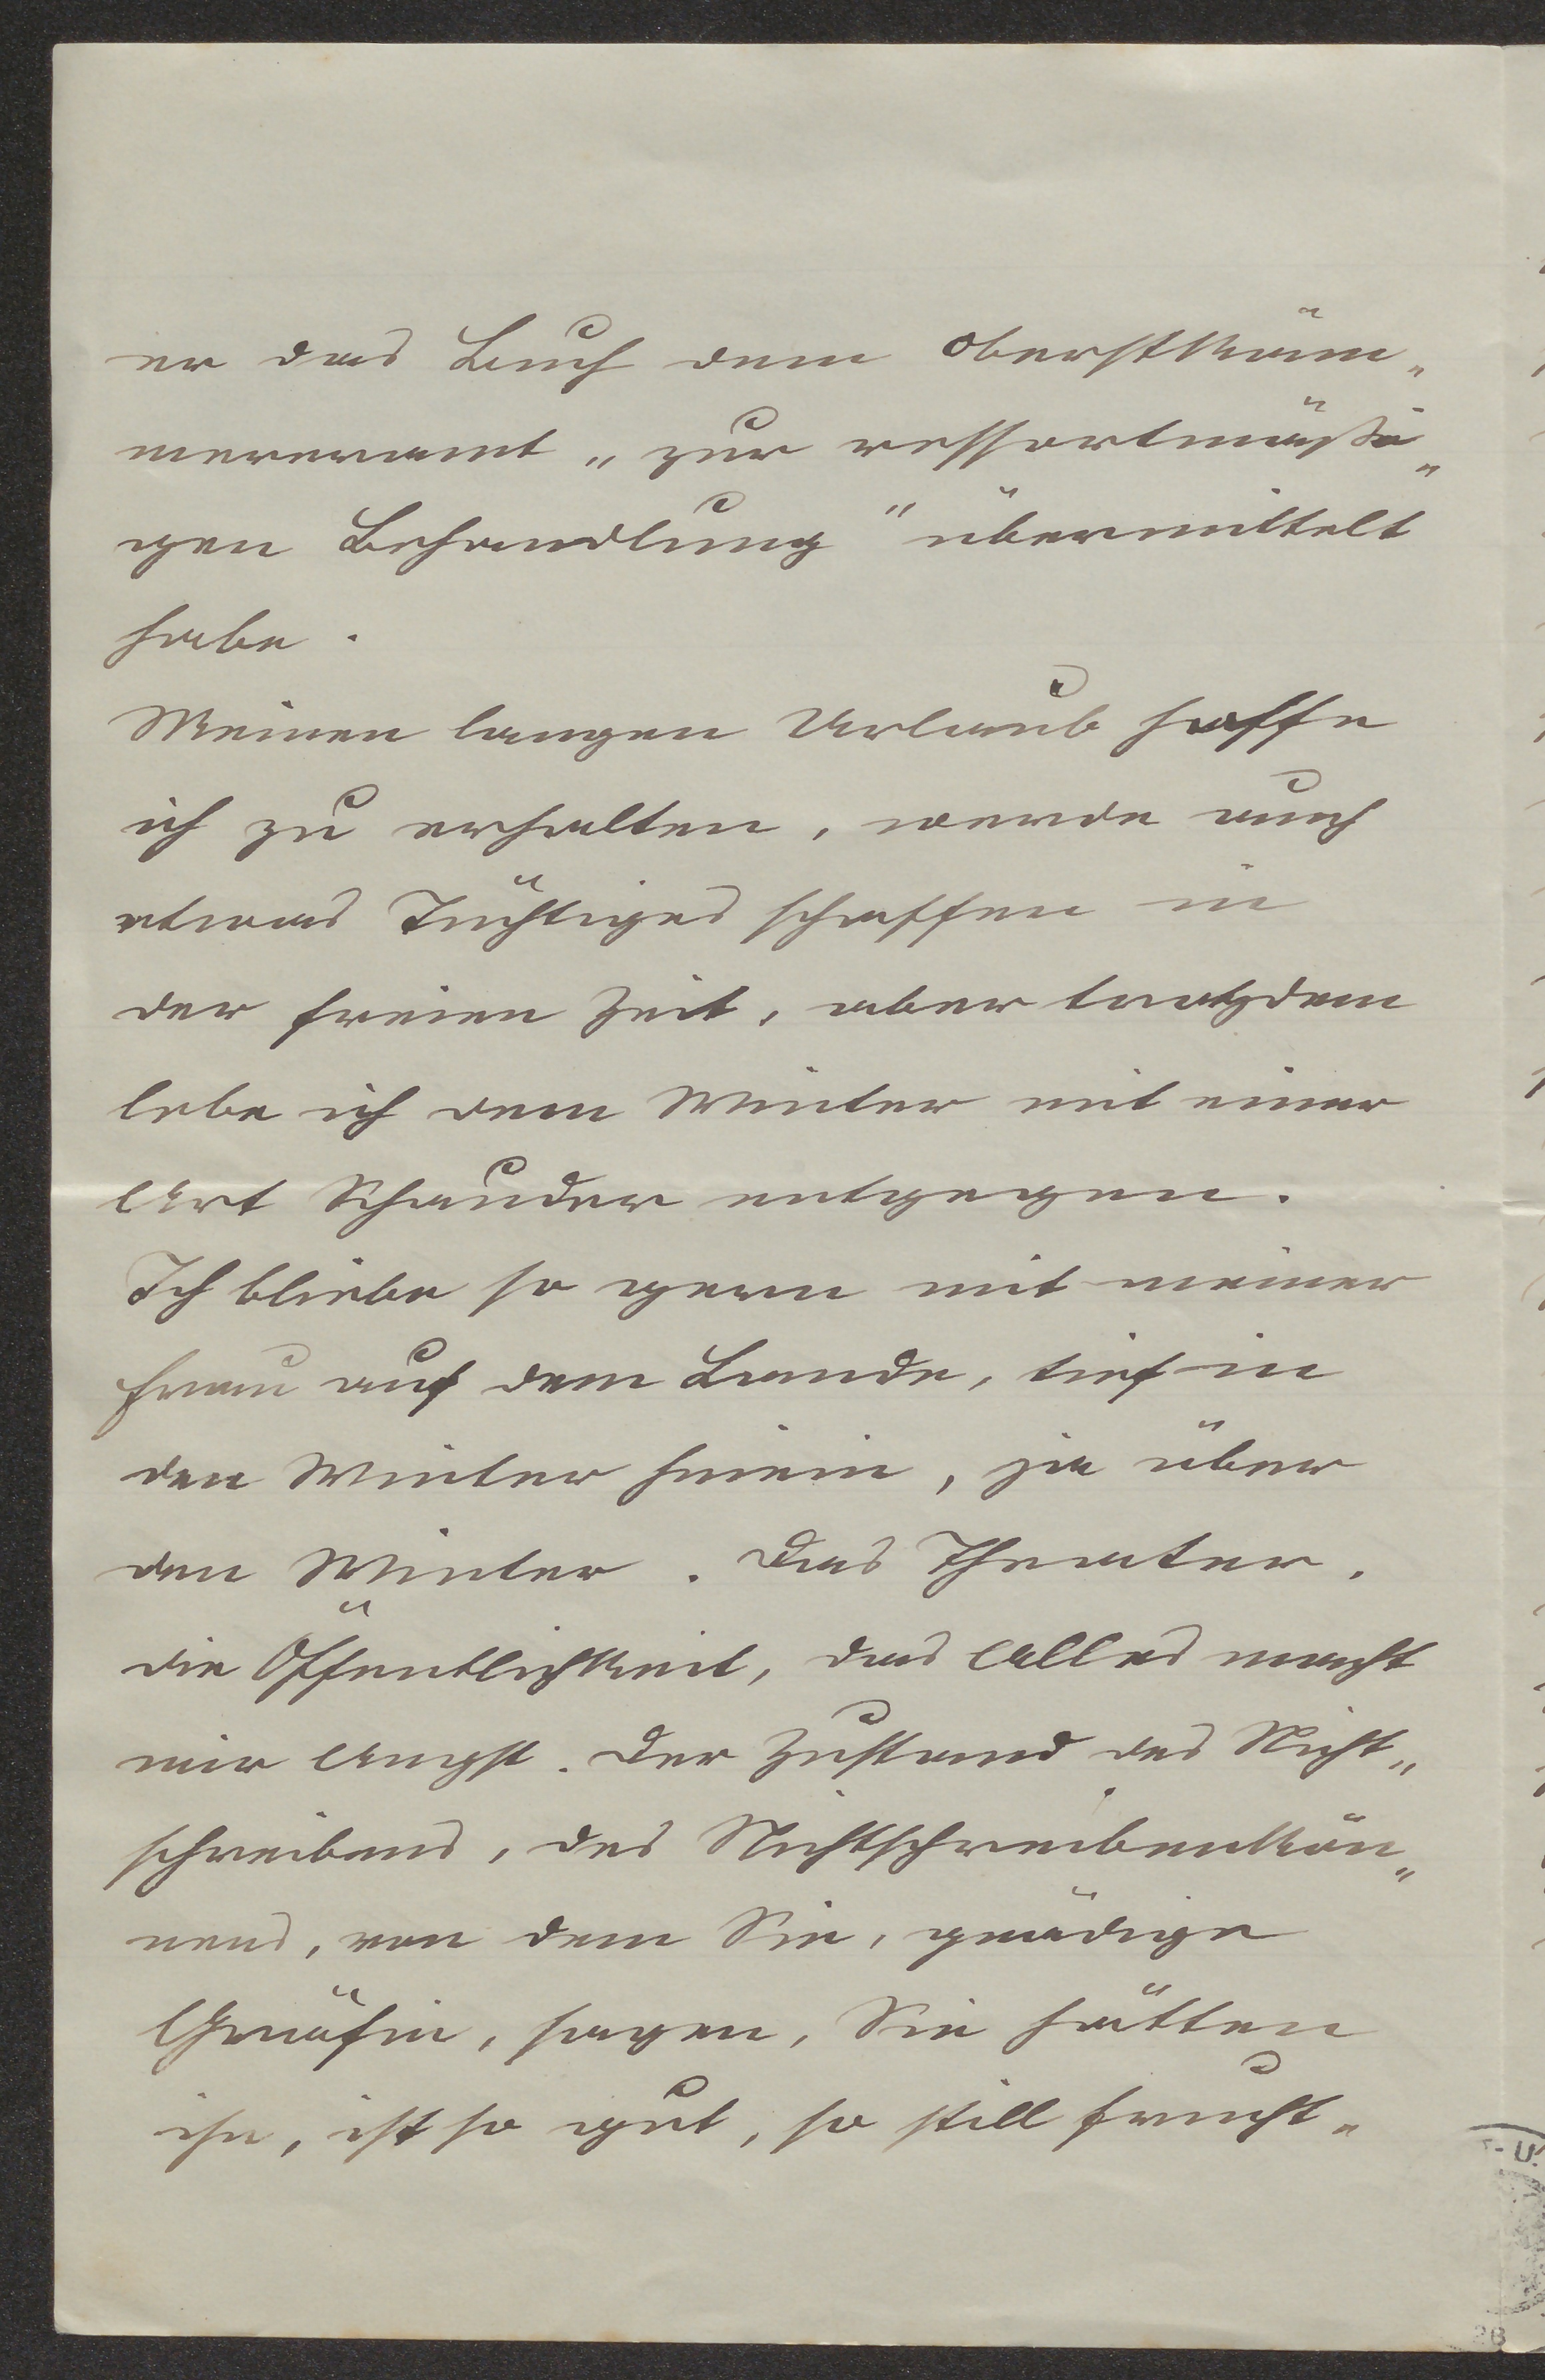 er das Buch dem Oberstkäm„
mereramt „zur ressortmäßi„
gen Behandlung“ übermittelt
habe.
Meinen langen Urlaub hoffe
ich zu erhalten, werde auch
etwas Tüchtiges schaffen in
der freien Zeit, aber trotzdem
lebe ich dem Winter mit einer
Art Schauder entgegen.
Ich bliebe so gern mit meiner
Frau auf dem Lande, tief in
den Winter hinein, ja über
den Winter. Das Theater,
die Öffentlichkeit, das Alles macht
mir Angst. Der Zustand des Nicht„
schreibens, des Nichtschreibenkön„
nens, von dem Sie, gnädige
Gräfin, sagen, Sie hätten
ihn, ist so gut, so still frucht„